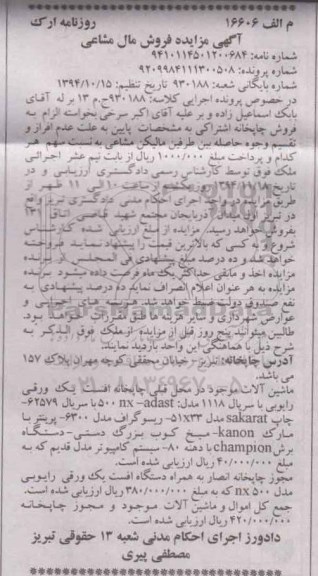 م الف ۱۶۶۰۶ روزنامه ارک
آگهی مزایده فروش مال مشاعی
شماره نامه: ۹۴۱۰۱۱۴۵۰۱۲۰۰۶۸۴
شماره پرونده: ۹۲۰۹۹۸۴۱۱۱۳۰۰۵۰۸
شماره بایگانی شعبه: ۹۳۰۱۸۸ تاریخ تنظیم: ۱۳۹۴/۱۰/۱۵
در خصوص پرونده اجرایی کلاسه: ۹۳۰۱۸۸ح.م ۱۳ بر له آقای
بابک اسماعیل زاده و بر علیه آقای اکبر سرخی بخواسته الزام به
فروش چاپخانه اشتراکی به مشخصات پایین به علت عدم افراز و
تقسیم وجوه حاصله بین طرفین مالیکن مشاعی به نسبت سهم هر
کدام و پرداخت مبلغ ۱/۰۰۰/۰۰۰ ریال از بابت نیم عشر اجرائی
ملک فوق توسط کارشناس رسمی دادگستری ارزیابی و در
تاریخ یکشنبه از ساعت ۱۰ الی ۱۱ ظهر از
طریق مزایده در واحد اجرای احکام مدنی دادگستری تبریز واقع
در تبریز اول میدان آذربایجان مجتمع شهید قاضی اتاق ۱۳۱
بفروش خواهد رسید. مزایده از مبلغ ارزیابی شده کارشناس
شروع و به کسی که بالاترین قیمت را پیشنهاد نماید فروخته
خواهد شد و ده درصد مبلغ پیشنهادی فی المجلس از برنده
مزایده اخذ و مابقی حداکثر یک ماه فرصت داده میشود برنده
مزایده به هر عنوان اعلام انصراف نماید ده درصد پیشنهادی به
نفع صندوق دولت ضبط خواهد شد. هزینه های اجرایی و
عوارض شهرداری و غیره برابر مقررات خواهد بود.
طالبین میتوانند پنج روز قبل از مزایده از ملک فوق الذکر به
شرح ذیل با هماهنگی این واحد بازدید نمایند.
آدرس چاپخانه: تبریز- خیابان محققی کوچه مهران پلاک ۱۵۷
می باشد.
ماشین آلات موجود در محل قبلی چاپخانه افست یک ورقی
رایوبی با سریال ۱۱۱۸ مدل: nx –adast ۵۰۰ با سریال ۶۲۵۷۹-
چاپ sakarat مدل ۵۱x۳۳- ریسوگراف مدل ۶۳۰۰- پرینتر با
مارک kanon- میخ کوب بزرگ دستی- دستگاه
برش champion با دهنه ۸۰- سیستم کامپیوتر مدل قدیم که به
مبلغ ۴۰/۰۰۰/۰۰۰ ریال ارزیابی شده است.
مجوز چاپخانه انصار به همراه دستگاه افست یک ورقی رایوبی
مدل nx ۵۰۰ که به مبلغ ۳۸۰/۰۰۰/۰۰۰ ریال ارزیابی شده است.
جمع کل اموال و ماشین آلات موجود و مجوز چاپخانه
۴۲۰/۰۰۰/۰۰۰ ریال ارزیابی شده است.
دادورز اجرای احکام مدنی شعبه ۱۳ حقوقی تبریز
مصطفی پیری